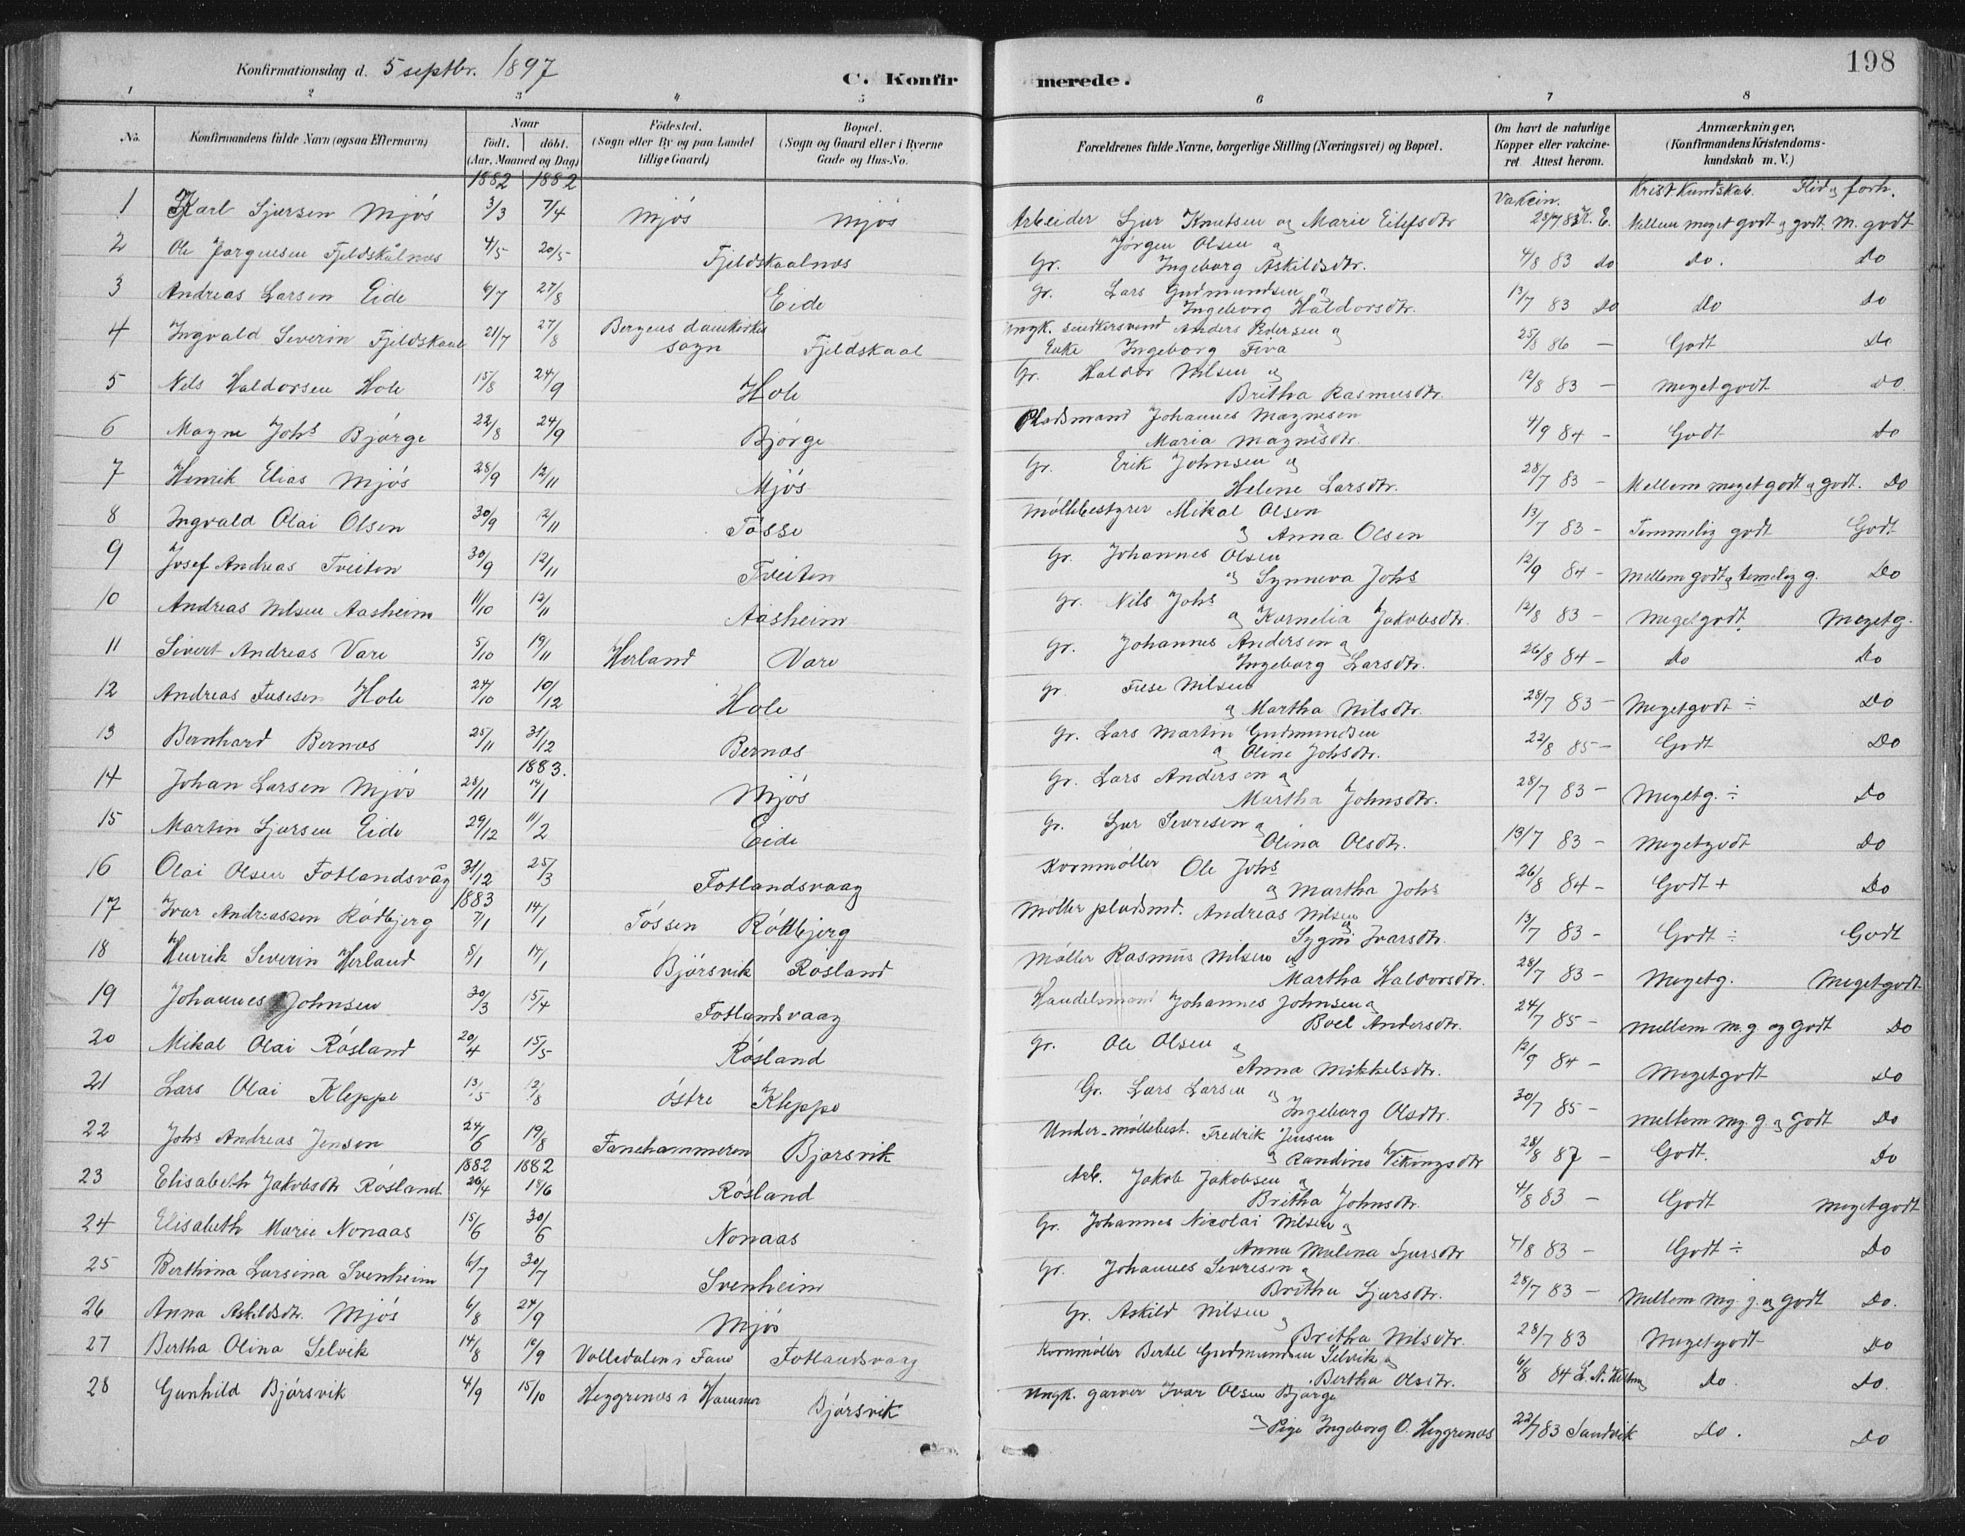 198
Konfirmationsdag d. 5 septbr. 1897
C. Konfirmerede.
1 2 3 4 5 6 7 8
No. Konfirmandens fulde Navn (ogsaa Efternavn) Naar födt. döbt. (Aar, Maaned og Dag) Födested. (Sogn eller By og paa Landet tillige Gaard) Bopæl. (Sogn og Gaard eller i Byerne Gade og Hus-No. Forældrenes fulde Navne, borgerlige Stilling (Næringsvei) og Bopæl. Om havt de naturlige Kopper eller vakcineret. Attest herom. Anmærkninger. (Konfirmandens Kristendomskundskab m. V.)
1882 1882 Vakcin. Krist Kundskab. Flid og forh.
1 Karl Sjursen Mjös 3/3 7/4 Mjös Mjös Arbeider Sjur Knutsen og Marie Eilefsdtr 28/7 83 K. E. Mellem meget godt og godt. M. godt
2 Ole Jørgensen Fjeldskålnæs 4/5 20/5 Fjeldskaalnæs Gr. Jørgen Olsen og Ingeborg Askildsdtr. 4/8 83 do do. Do
3 Andreas Larsen Eide 6/7 27/8 Eide Gr. Lars Gudmundsen og Ingeborg Haldorsdtr. 13/7 83 Do Do Do
4 Ingvald Severin Fjeldskaal 21/7 27/8 Bergens domkirkes sogn Fjeldskaal Ungk. snedkersvend Anders Pedersen og Enke Ingeborg Fiva 25/8 86 — Godt Do
5 Nils Haldorsen Hole 15/8 24/9 Hole Gr. Haldor Nilsen og Britha Rasmusdtr. 12/8 83 — Megetgodt Do.
6 Magne Johs Bjørge 22/8 24/9 Bjørge Pladsmand Johannes Magnesen og Maria Magnesdtr. 4/9 84 — Godt Do
7 Henrik Elias Mjös 28/9 12/11 Mjös Gr. Erik Johnsen og Helene Larsdtr. 28/7 83 — Mellem megetgodt og godt. Do
8 Ingvald Olai Olsen 30/9 12/11 Tösse Møllebestyrer Mikal Olsen og Anna Olsen 13/7 83 — Temmelig godt Godt
9 Josef Andreas Tveiten 30/9 12/11 Tveiten Gr. Johannes Olsen og Synneva Johs 12/9 84 — Mellem godt og temelig g. Do
10 Andreas Nilsen Aasheim 11/10 12/11 Aasheim Gr. Nils Johs og Kornelia Jakobsdtr. 12/8 83 — Megetgodt. Meget g.
11 Sivert Andreas Vare 5/10 19/11 Herland Vare Gr. Johannes Andersen og Ingeborg Larsdtr. 26/8 84 — do Do
12 Andreas Fusesen Hole 24/10 10/12 Hole Gr. Fuse Nilsen og Martha Nilsdtr. 28/7 83 — Megetgodt ÷ Do
13 Bernhard Bernæs 25/11 31/12 Bernæs Gr. Lars Martin Gudmundsen og Oline Johsdtr. 22/8 85 — Godt Do
1883.
14 Johan Larsen Mjös 28/11 14/1 Mjös Gr. Lars Andersen og Martha Johnsdtr. 28/7 83 — Megetg. ÷ Do
15 Martin Sjursen Eide 29/12 11/2 Eide Gr. Sjur Severesen og Olina Olsdtr. 13/7 83 — Megetgodt Do
16 Olai Olsen Fotlandsvåg 31/12 25/3 Fotlandsvaag Kornmøller Ole Johs og Martha Johs 26/8 84 — Godt + Do
1883
17 Ivar Andreassen Rödbjerg 7/1 14/1 Tössen Rödbjerg Møller pladsmd. Andreas Nilsen og Sygni Ivarsdtr. 13/7 83 — Godt ÷ Godt
18 Henrik Severin Herland 5/1 14/1 Bjørsvik Rosland Møller Rasmus Nilsen og Martha Haldorsdtr. 28/7 83 — Megetg. Megetgodt
19 Johannes Johnsen 30/3 15/4 Fotlandsvaag Handelsmand Johannes Johnsen og Boel Andersdtr. 24/7 85 — Mellem m.g. og godt Do
20 Mikal Olai Rösland 20/4 15/5 Rösland Gr. Ole Olsen og Anna Mikkelsdtr. 12/9 84 — Megetgodt Do
21 Lars Olai Kleppe 13/5 12/8 østre Kleppe Gr. Lars Larsen og Ingeborg Olsdtr. 30/7 85 — Mellem mg. g og godt Do
22 Johs Andreas Jensen 24/6 19/8 Fanehammeren Bjørsvik Under-møllebest. Fredrik Jensen og Randine Vikingsdtr 28/8 87 — Godt. Do
1882 1882
23 Elisabeth Jakobsdtr Rösland 26/4 18/6 Rösland Arb. Jakob Jakobsen og Britha Johnsdtr. 4/8 83 — Godt Megetgodt
24 Elisabeth Marie Nonaas 15/6 30/6 Nonaas Gr. Johannes Nicolai Nilsen og Anna Malena Sjursdtr 4/8 83 — Godt ÷ Do
25 Berthina Larsina Svenheim 6/7 30/7 Svenheim Gr. Johannes Severesen og Britha Sjursdtr. 28/7 83 — Mellem mg. g. og godt Do.
26 Anna Askildsdtr. Mjös 6/8 24/9 Mjös Gr. Askild Nilsen og Britha Nilsdtr. 28/7 83 Megetgodt Do
27 Bertha Olina Selvik 14/8 10/9 Volledalen i Fane Fotlandsvaag Kornmøller Bertel Gudmundsen Selvik og Bertha Olsdtr. 6/8 84 Do. Do.
28 Gunhild Bjørsvik 4/9 15/10 Heggrenæs i Hammer Bjørsvik Ungk. garver Ivar Olsen Bjørge og Pige Ingeborg O. Heggrenæs 22/7 83 Sandvik Do. Do